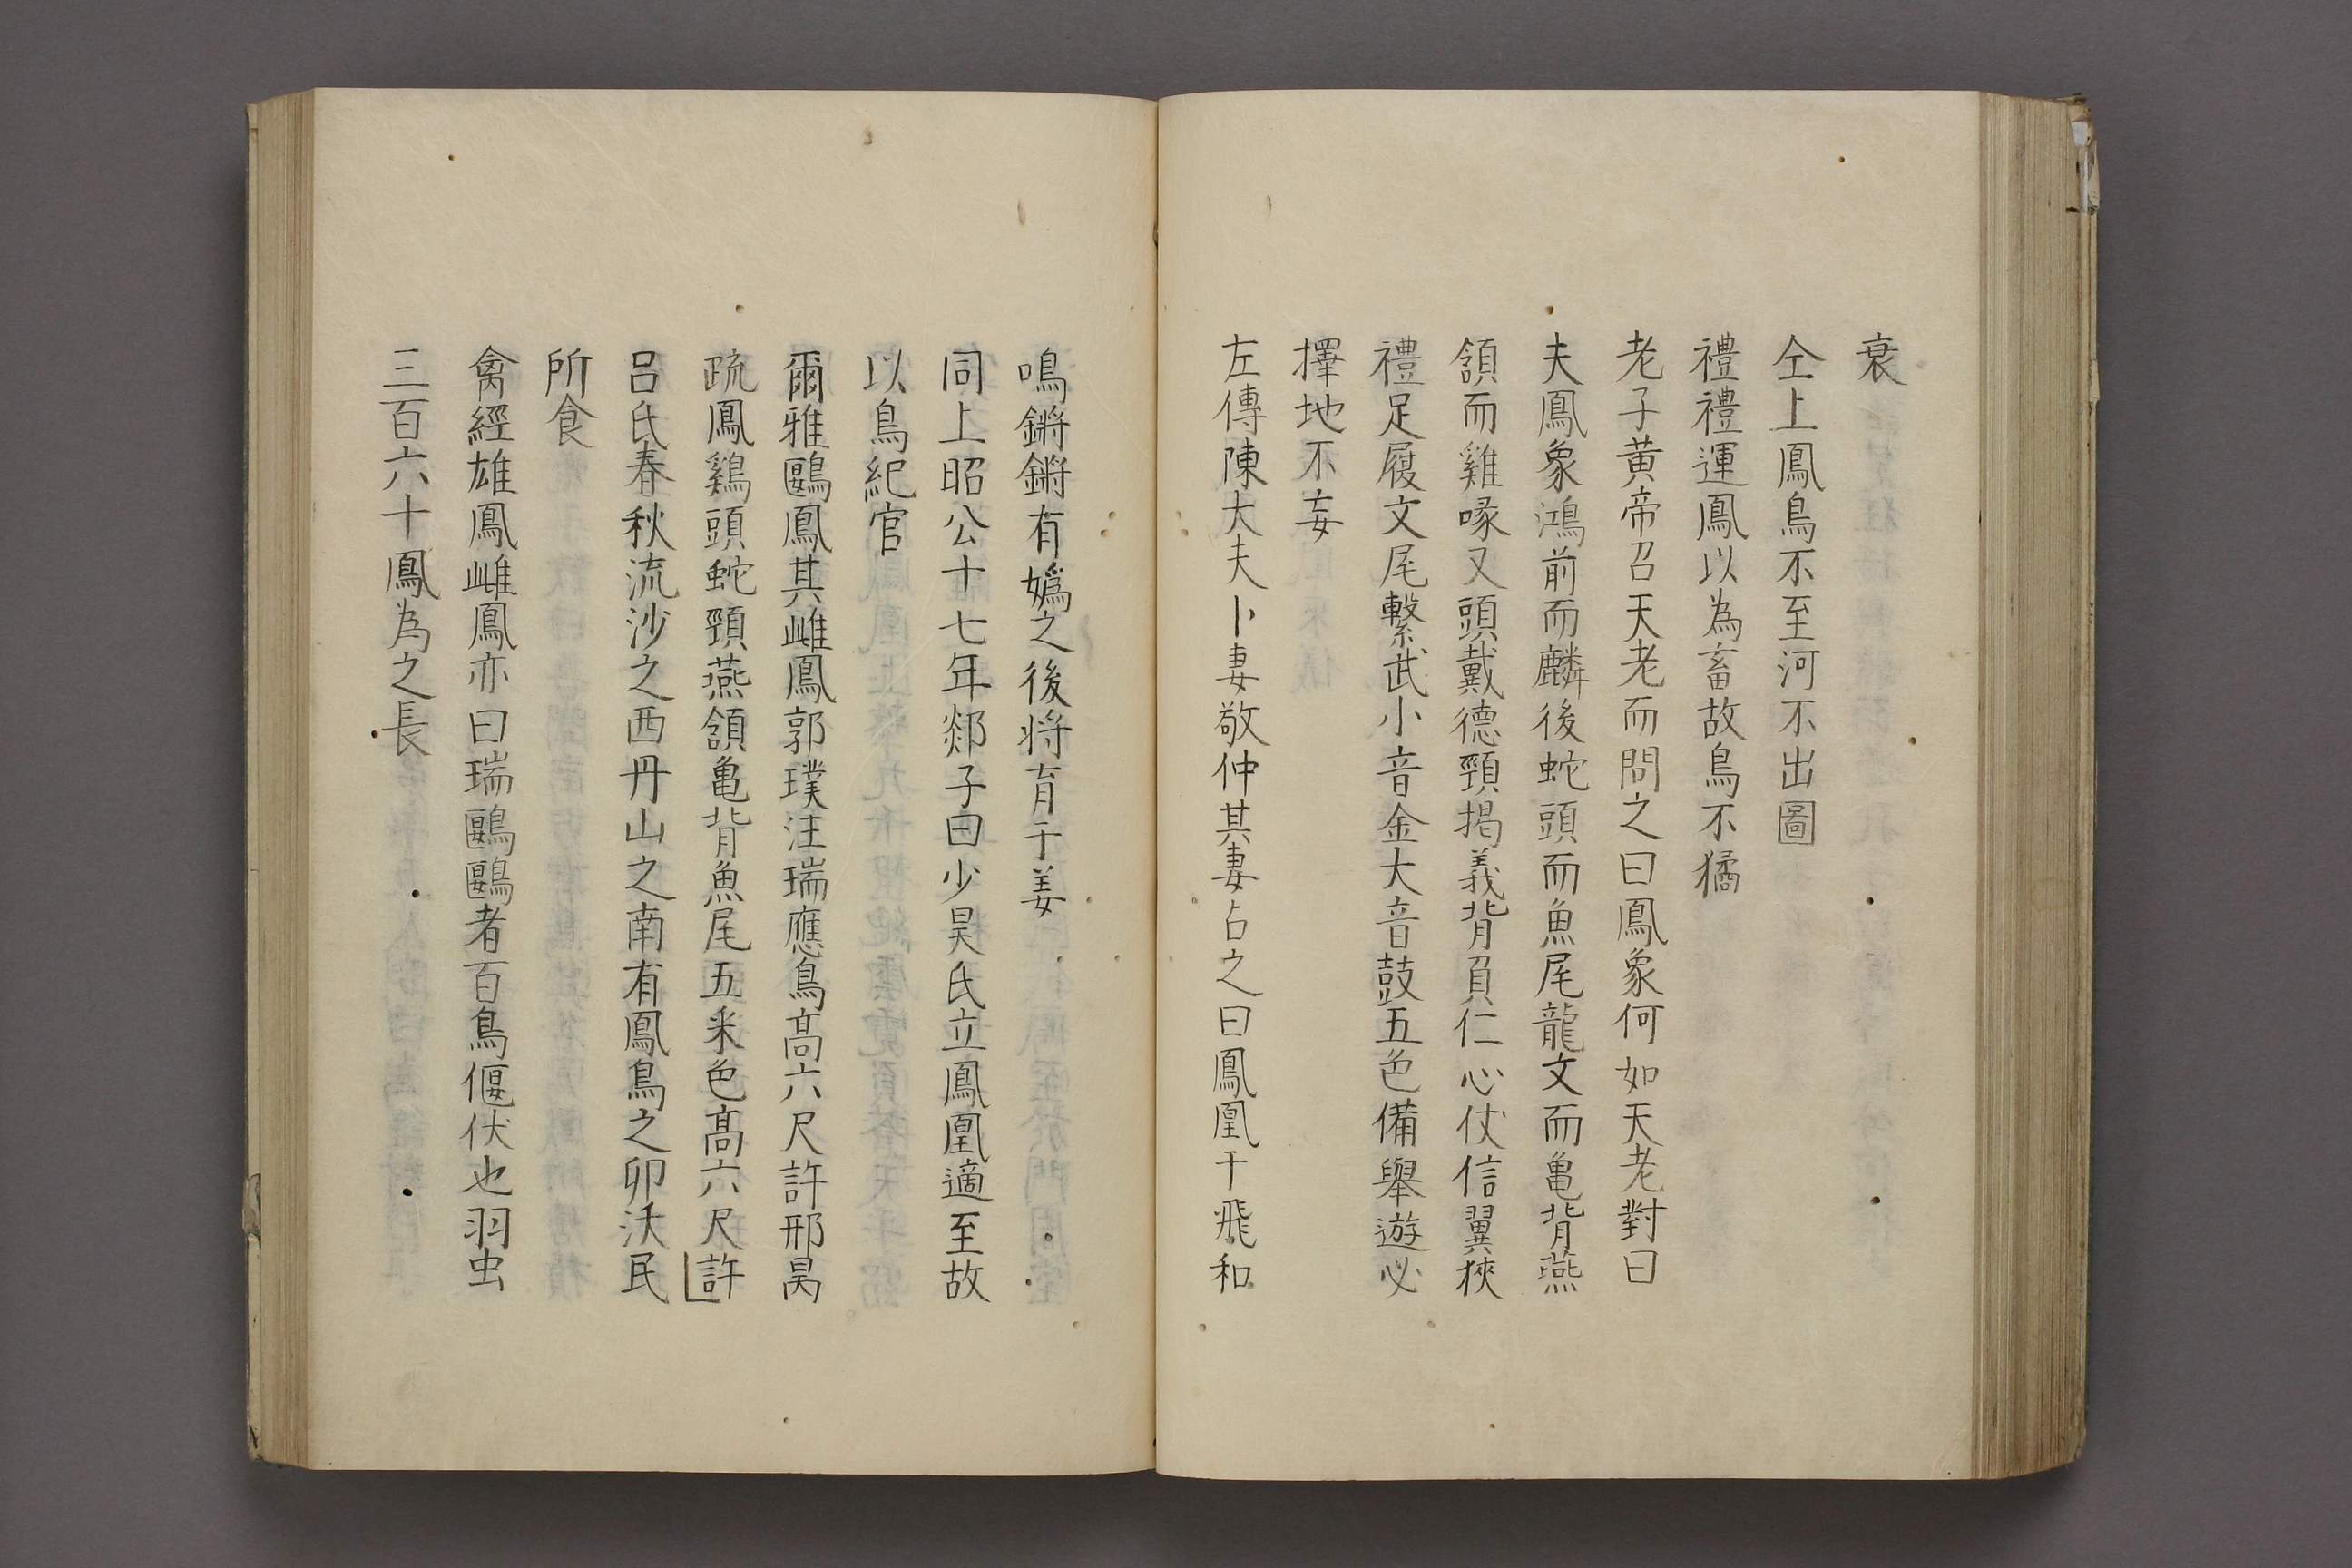 衰
仝上鳳鳥不至河不出圖
禮禮運鳳以為畜故鳥不獝
老子黄帝召天老而問之曰鳳象何如天老對曰
夫鳳象鴻前而麟後蛇頭而魚尾龍文而亀背燕
頷而雞喙又頭戴德頸掲義背負仁心仗信翼狹
禮足履文尾繫武小音金大音鼓五色備舉遊必
擇地不妄
左傳陳大夫卜妻敬仲其妻占之曰鳳凰干飛和
鳴鏘鏘有嬀之後将育于姜
同上昭公十七年郯子曰少昊氏立鳳凰適至故
以鳥紀官
爾雅鷗鳳其雌鳳郭璞注瑞應鳥髙六尺許邢昺
疏鳳鷄頭蛇頸燕頷亀背魚尾五釆色髙六尺許
呂氏春秋流沙之西丹山之南有鳳鳥之卵沃民
所食
禽經雄鳳雌鳳亦曰瑞鷗鷗者百鳥偃伏也羽虫
三百六十鳳為之長